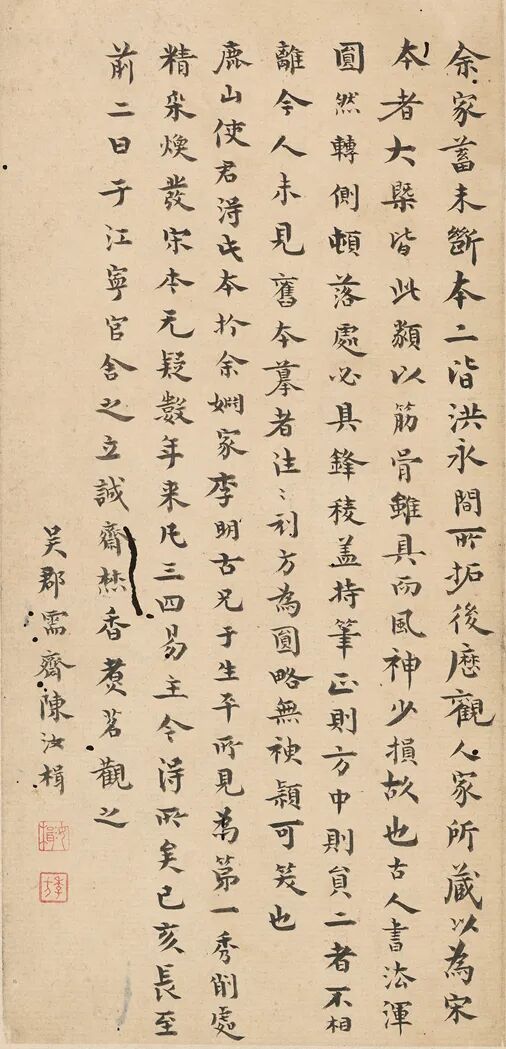 余家蓄未斷本二皆洪永間所拓後歷觀人家所藏以為宋
本者大槩皆此類以筋骨雖具而風神少損故也古人書法渾
圓然轉側頓落處必具鋒稜蓋持筆正則方中則員二者不相
離今人未見舊本摹者注〻刓方為圓略無神穎可笑也
鹿山使君淂此本扵余姻家李明古兄于生平所見為第一秀削處
精采煥發宋本无疑數年来凡三四易主今淂所矣已亥長至
前二日于江寧官舍之立誠齋焚香煑茗觀之
吴郡需齋陳汝楫
汝楫
季方